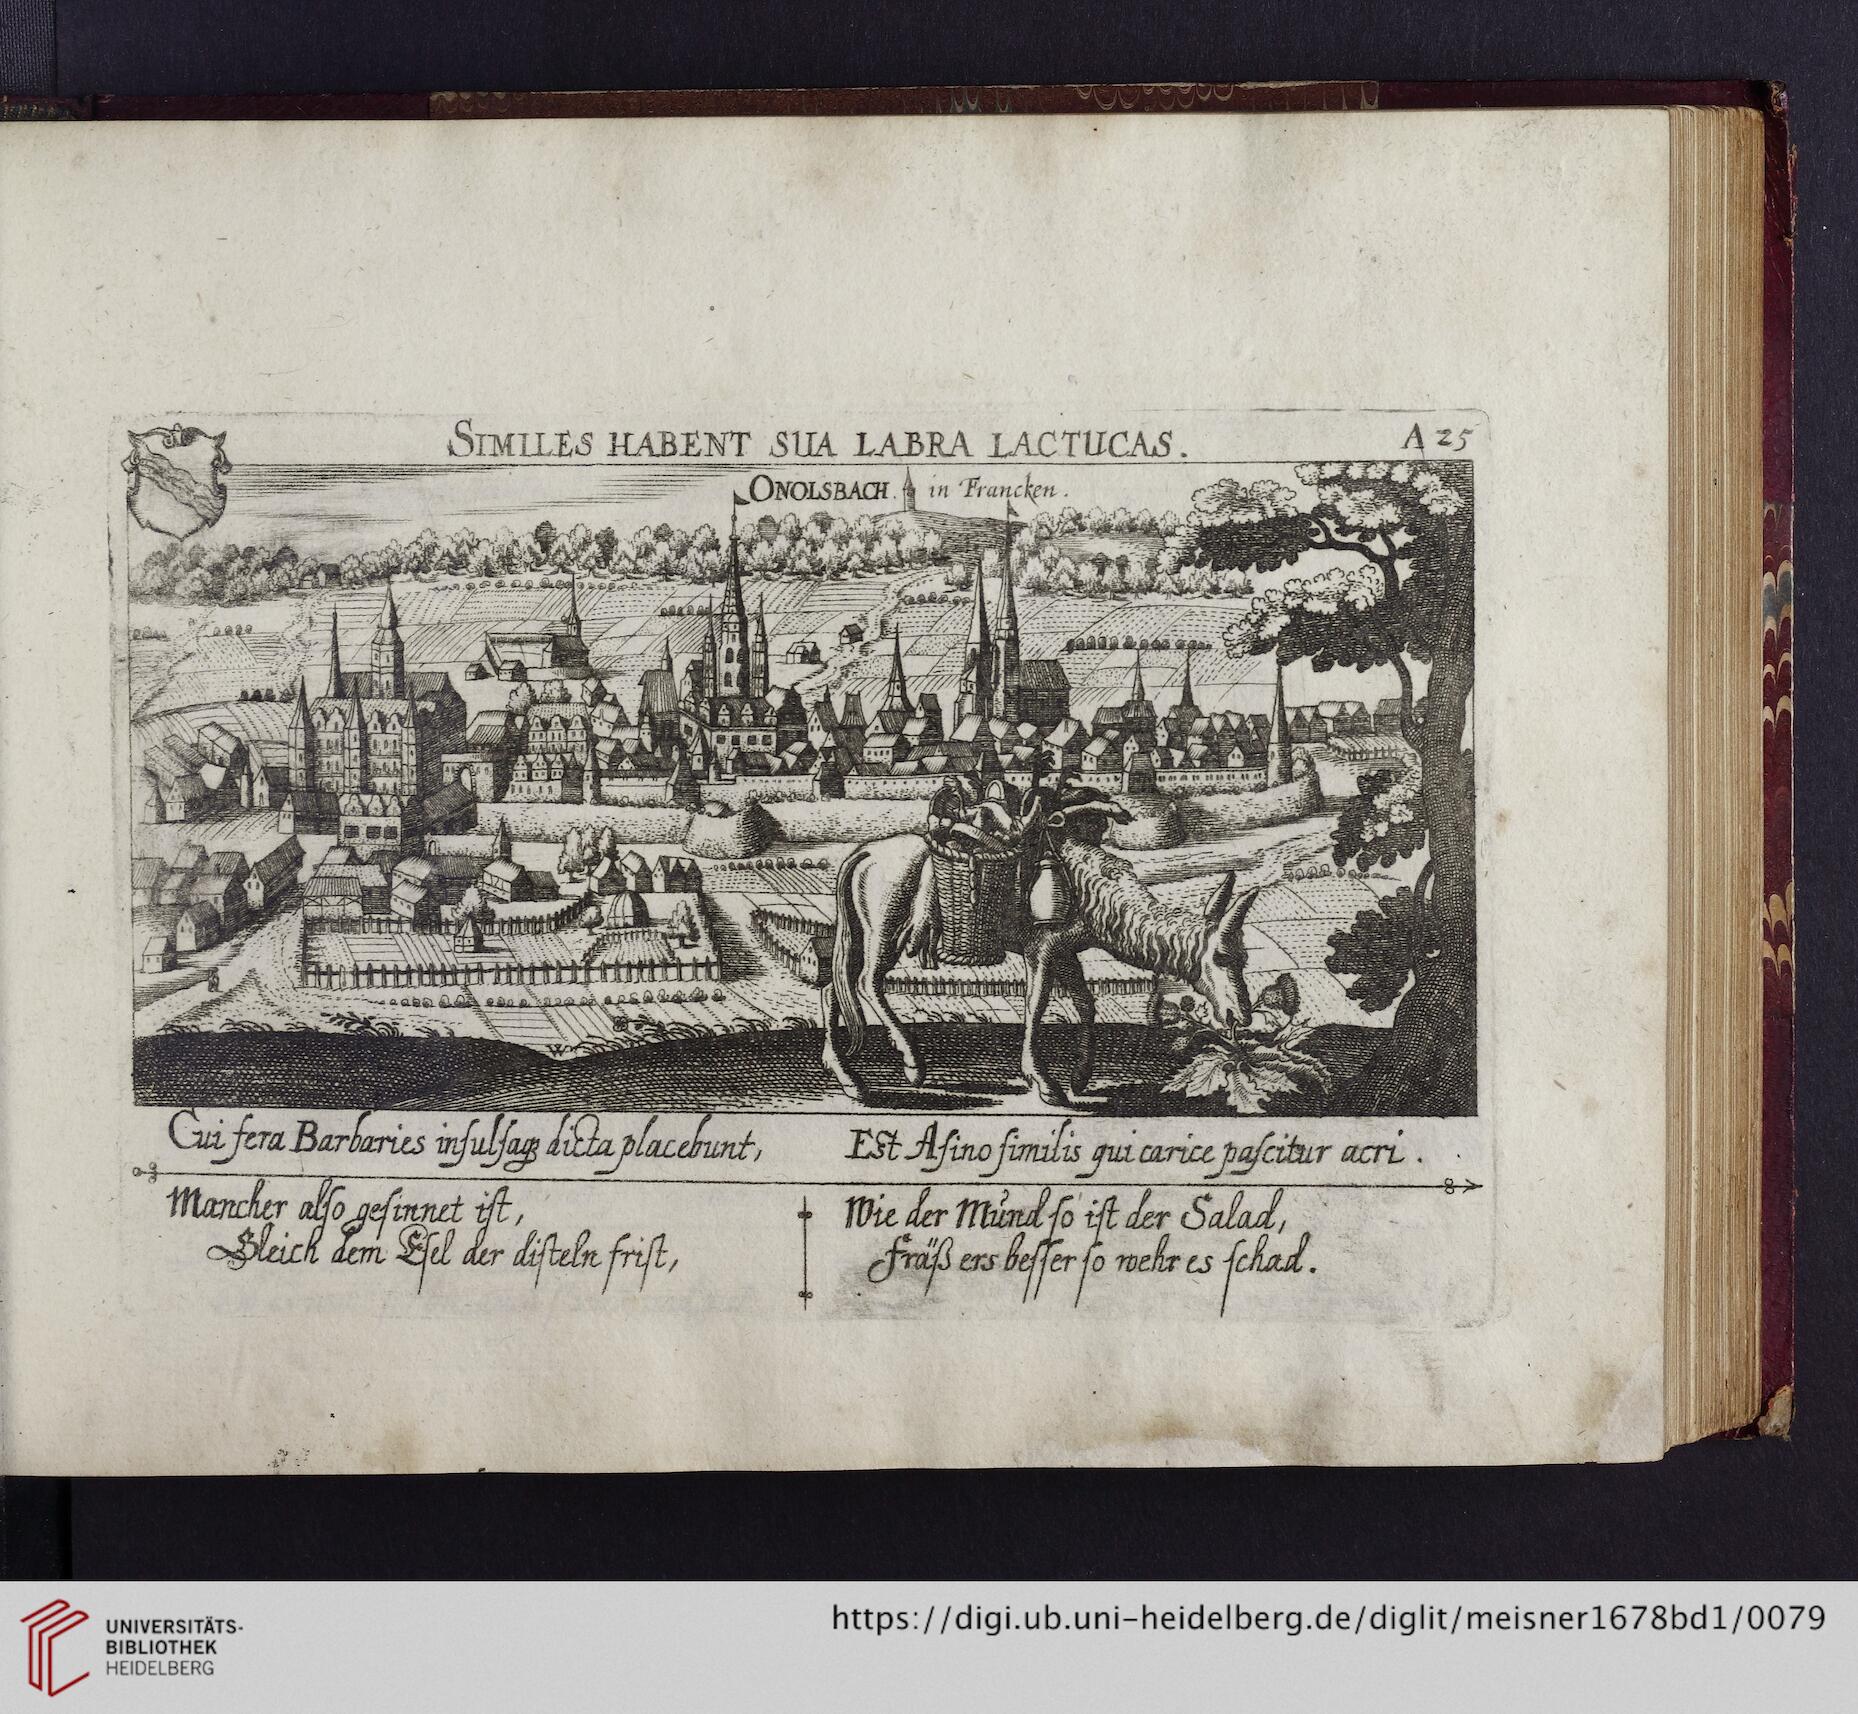 SIMILES HABENT SUA LABRA LACTUCAS.
A 25
ONOLSBACH. in Francken.
W
Cui fera Barbaries insulsaqz dicta placebunt,
Est Asino similis qui carice pascitur acri.
Mancher also gesinnet ist,
Gleich dem Esel der disteln frist,
Wie der Mund so ist der Salad,
Fräß ers besser so wehr es schad.
UNIVERSITÄTS-
BIBLIOTHEK
HEIDELBERG
https://digi.ub.uni-heidelberg.de/diglit/meisner1678bd1/0079